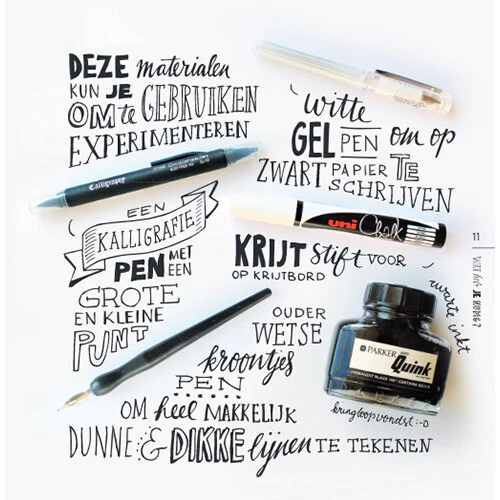 DEZE materialen
KUN JE
OM te GEBRUIKEN
EXPERIMENTEREN
witte
GEL PEN om op
ZWART PAPIER TE
SCHRIJVEN
Calligraphy
EEN
KALLIGRAFIE
PEN MET
EEN
GROTE
EN KLEINE
PUNT
uni Chalk
KRIJT stift VOOR
OP KRIJTBORD
11
WAT heb JE NODIG?
zwarte inkt
OUDER
WETSE
kroontjes
PEN
PARKER Quink
PERMANENT BLACK INK
kringloopvondst :-D
OM heel MAKKELIJK
DUNNE & DIKKE lijnen TE TEKENEN